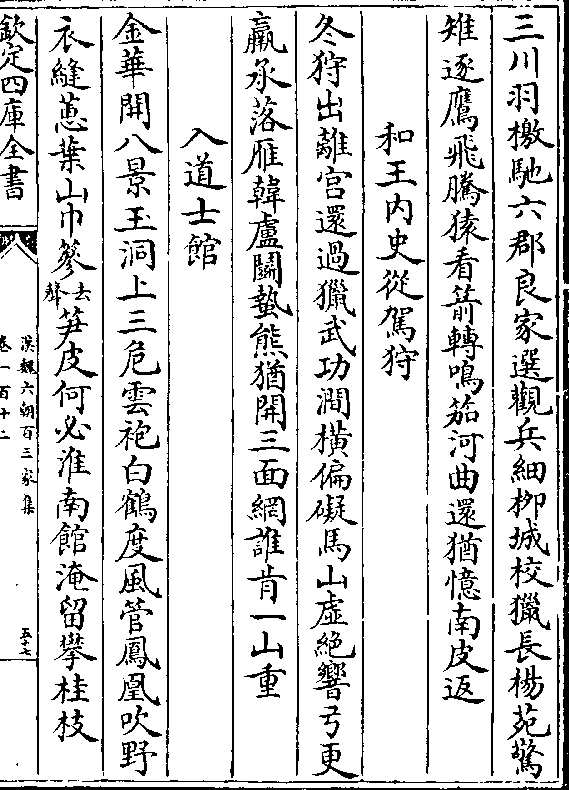 三川羽檄馳六郡良家選觀兵細栁城校獵長楊苑驚
雉逐鷹飛騰猿看箭轉鳴笳河曲還猶憶南皮返
和王內史從駕狩
冬狩出離宮還過獵武功澗橫偏礙馬山虛絶響弓更
羸承落雁韓盧鬬蟄熊猶開三面網誰肯一山重
入道士館
金華開八景玉洞上三危雲袍白鶴度風管鳳凰吹野
衣縫蕙葉山巾篸去聲笋皮何必淮南館淹留攀桂枝
欽定四庫全書
漢魏六朝百三家集
卷一百十二
五十七